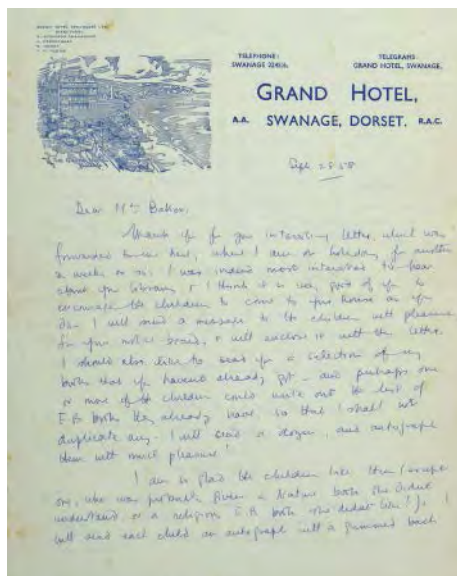 TELEPHONE:
SWANAGE
TELEGRAMS:
GRAND HOTEL, SWANAGE.
GRAND HOTEL,
A.A. SWANAGE, DORSET. R.A.C.
Sept. 25. 58
Dear Mrs Baker,
Thank you for your interesting letter, which was
forwarded to me here, where I am on holiday for another
2 weeks or so. I was indeed most interested to hear
about your library, & I think it is very good of you to
encourage the children to come to your house as you
do. I will send a message to the children with pleasure
for your notice board, & will enclose it with this letter.
I should also like to send you a selection of my
books that you haven't already got - and perhaps one
or more of the children could write out the list of
E.B. books they already have so that I shall not
duplicate any. I will send a dozen, and autograph
them with much pleasure!
I am so glad the children like them (except
one, who was given a Nature book she didn't
understand or a religious E.B. book she didn't like!)
will send each child an autograph with a gummed back